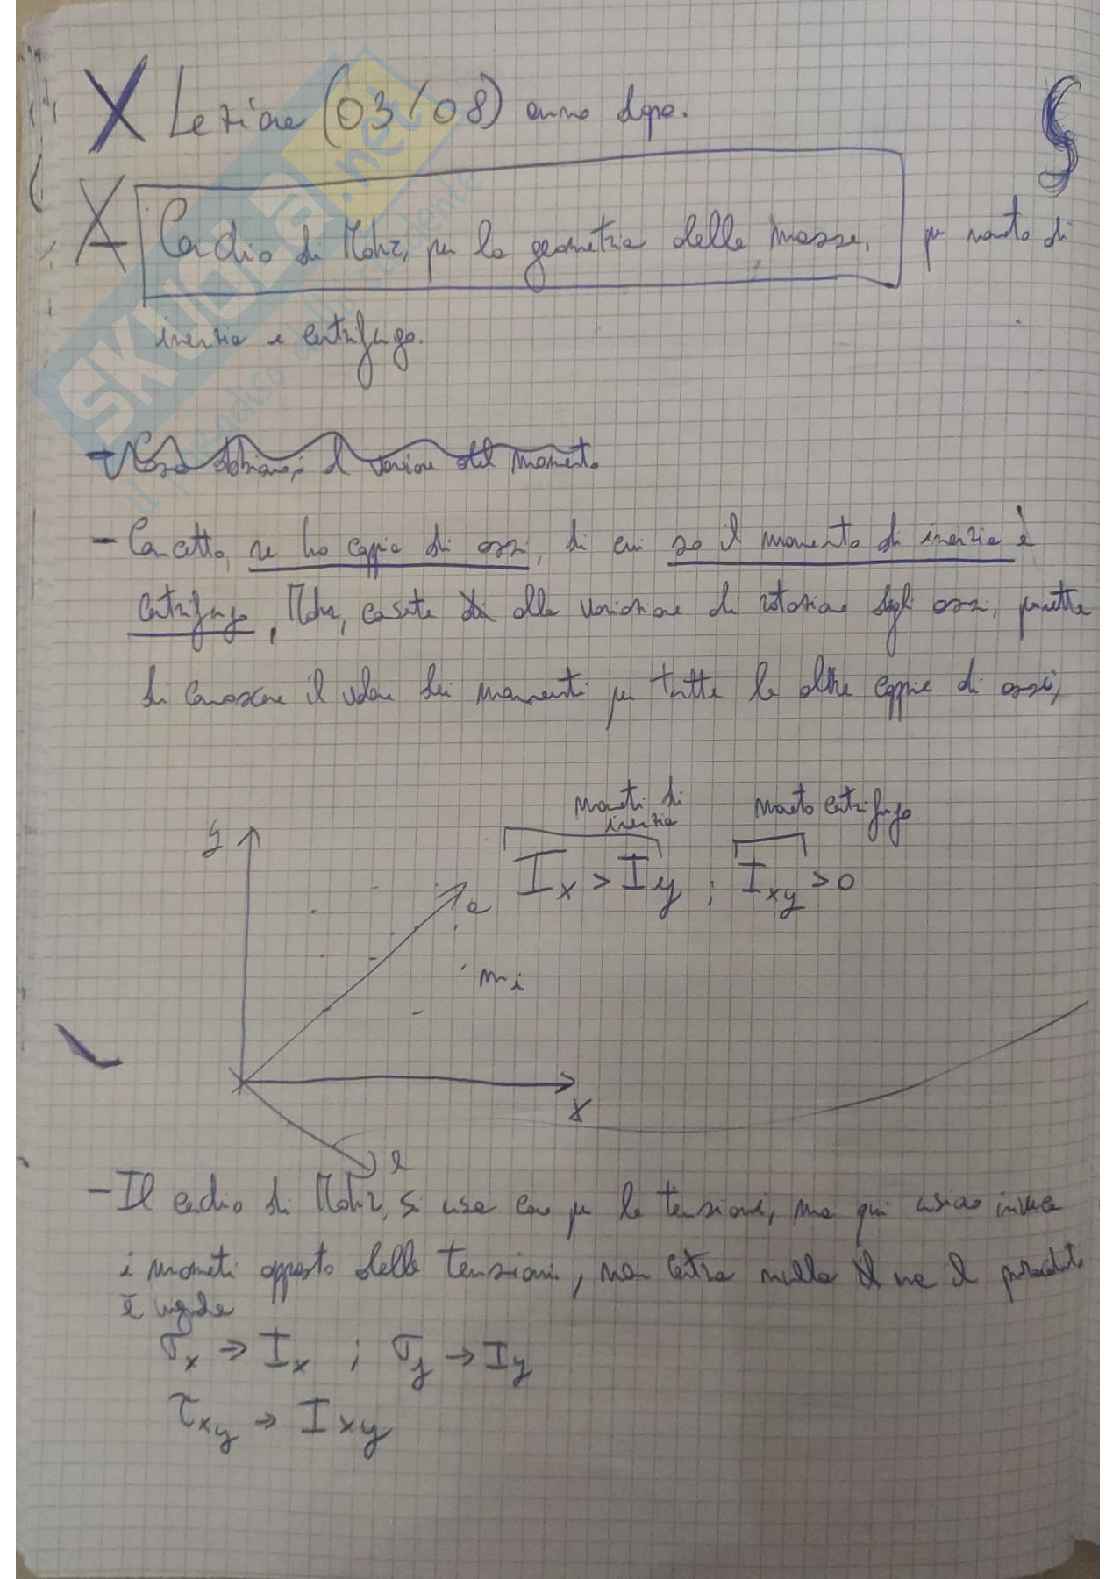 Lezione (03/08) anno dopo.
Cerchio di Mohr, per la geometria delle masse, per momento di
inerzia e centrifugo.
del momento
- Concetto, se ho coppie di assi, di cui so il momento di inerzia e
centrifugo, Mohr, alla variazione di rotazione degli assi, permette
di conoscere il valore dei momenti per tutte le altre coppie di assi,
momenti di
inerzia
momento centrifugo
y
a
I_x > I_y ; I_xy > 0
m_i
x
- Il cerchio di Mohr, si usa per le tensioni, ma qui invece
i momenti opposto delle tensioni, non centra nulla
è uguale
σ_x → I_x ; σ_y → I_y
τ_xy → I_xy
SKUOLA.net